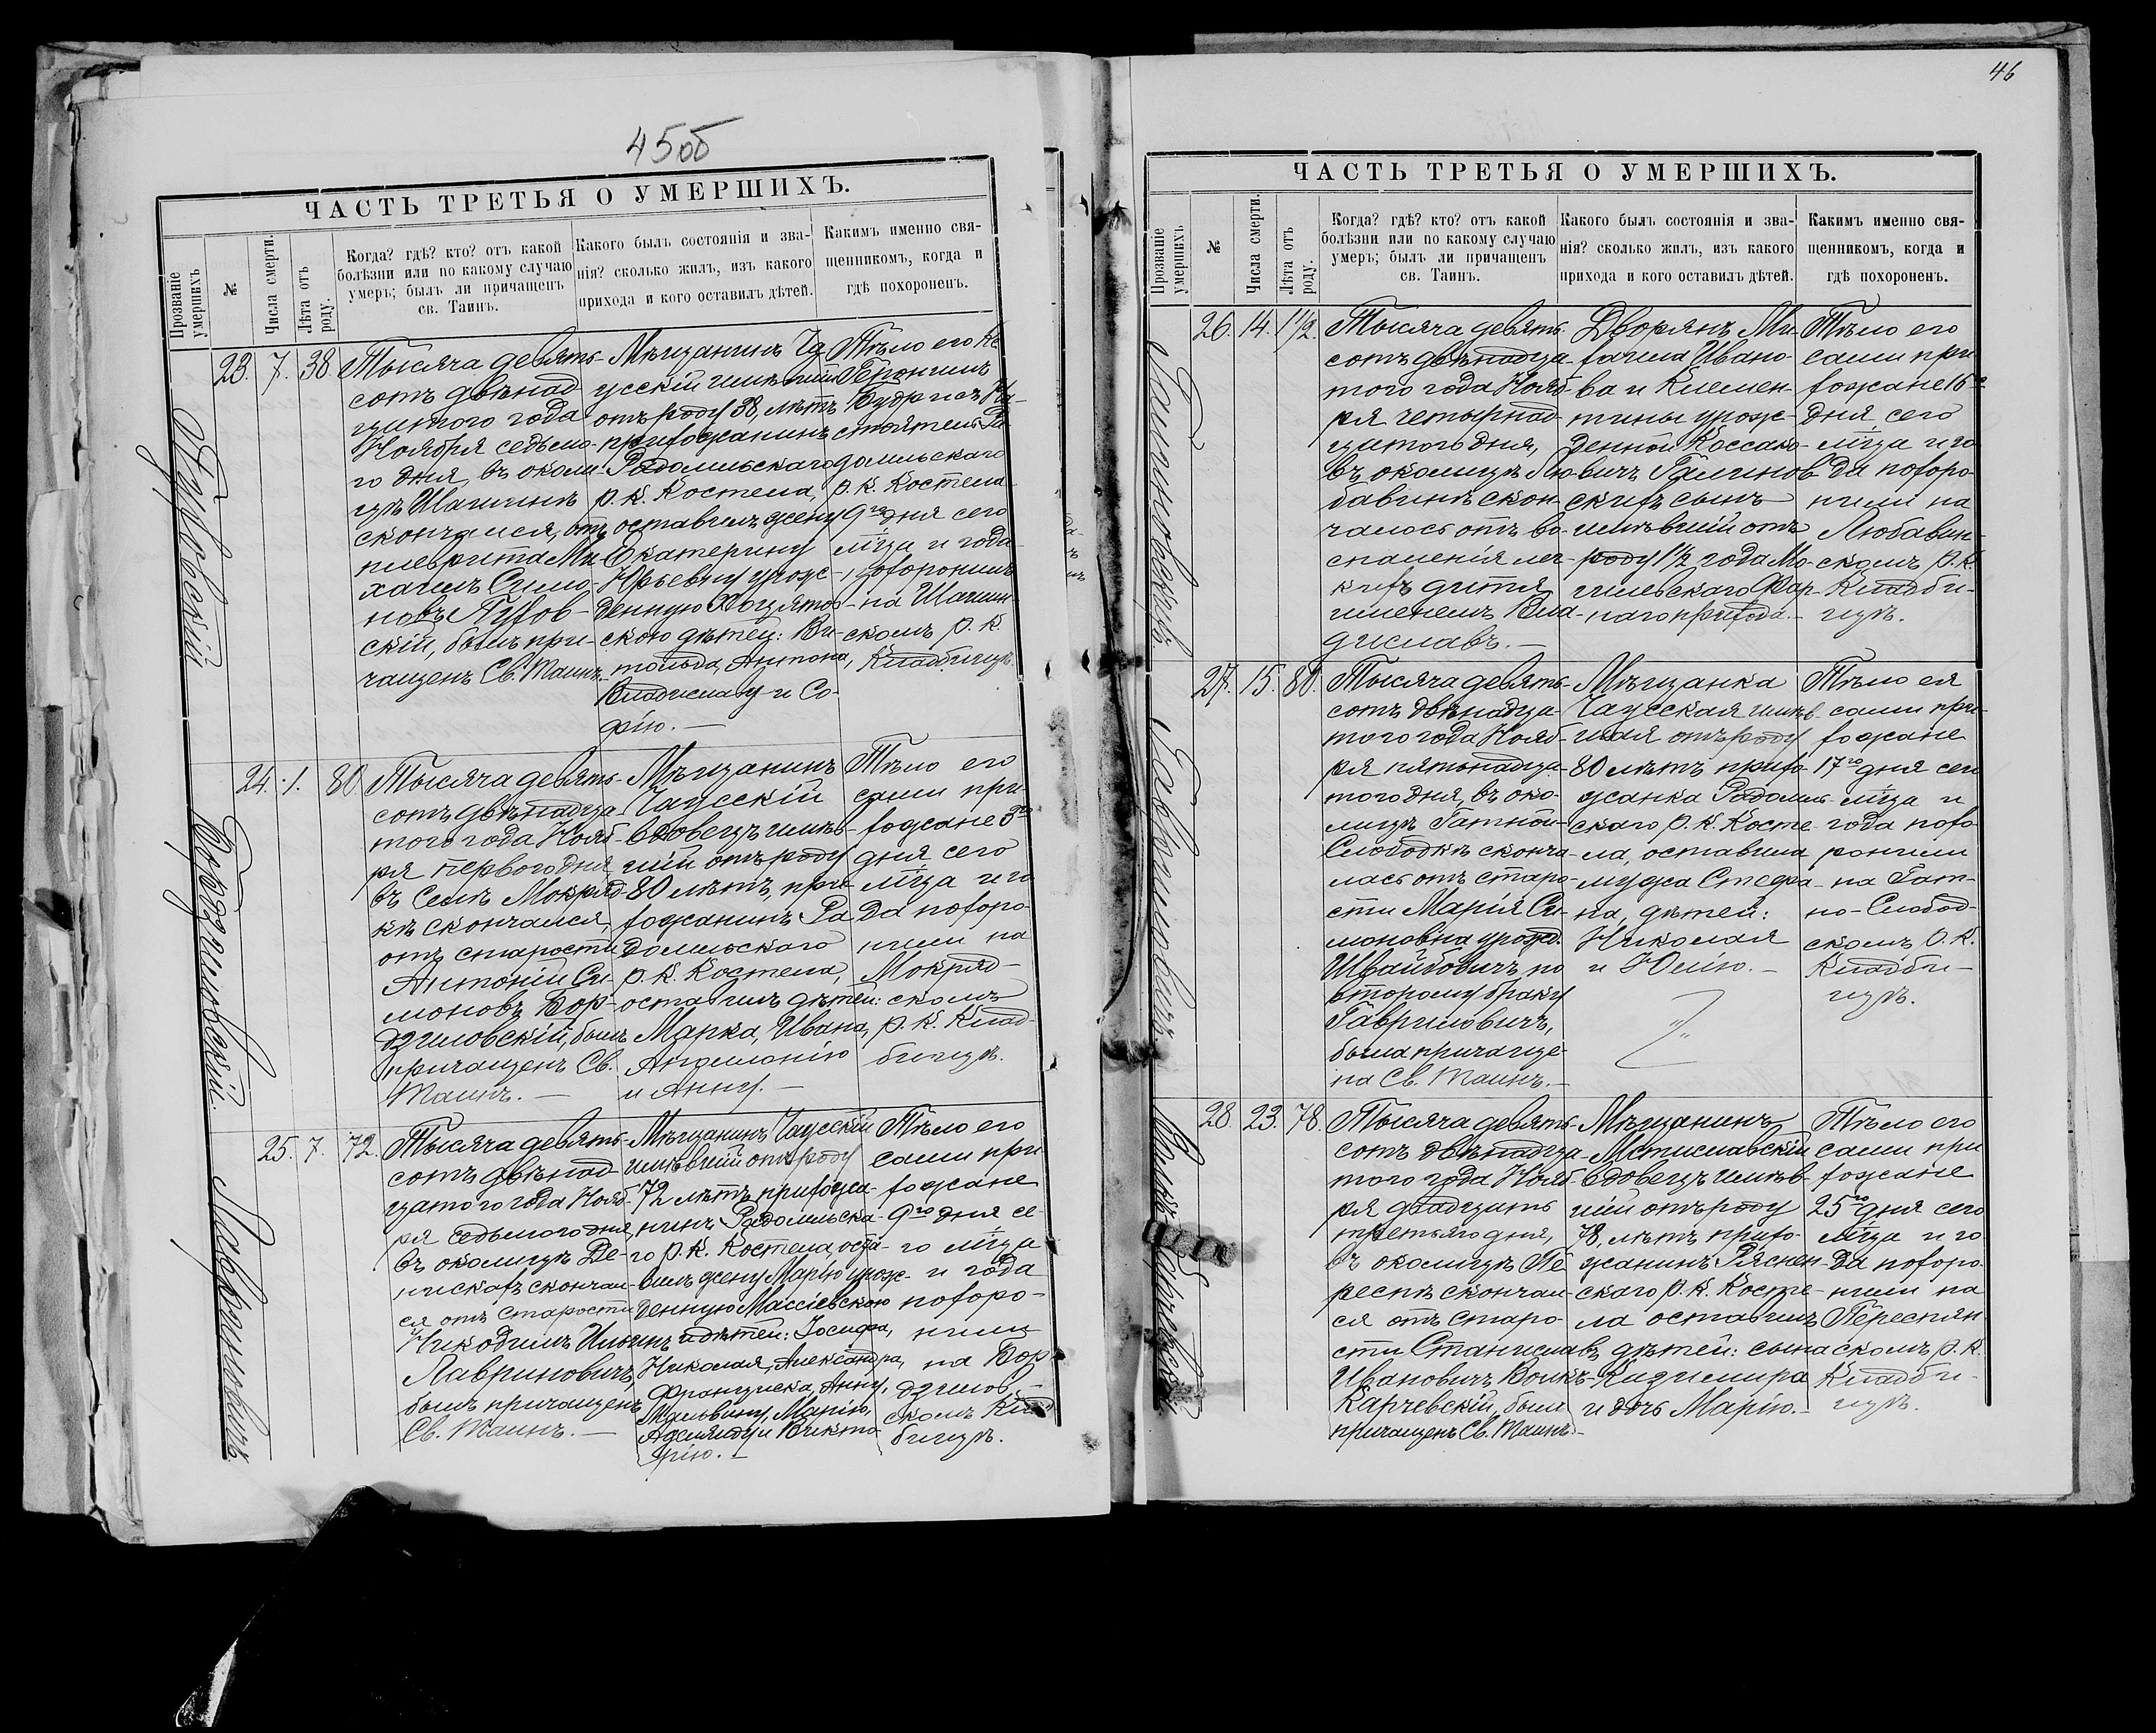 45об
ЧАСТЬ ТРЕТЬЯ О УМЕРШИХЪ.
Прозваніе умершихъ
№
Числа смерти.
Лѣта отъ роду.
Когда? гдѣ? кто? отъ какой
болѣзни или по какому случаю
умеръ; былъ ли причащенъ
св. Таинъ.
Какого былъ состоянія и зва-
нія? сколько жилъ, изъ какого
прихода и кого оставилъ дѣтей.
Какимъ именно свя-
щенникомъ, когда и
гдѣ похороненъ.
23. 7. 38.
Тысяча девять-
сотъ двѣнад
цатого года
Ноября седьмо-
го дня, въ околи
цѣ Шатинѣ
скончался, отъ
плеврита Ми-
хаилъ Симо-
новъ
скій, былъ при-
чащенъ Св. Таинъ.
Мѣщанинъ Ча
усскій имѣвшій
отъ роду 38, лѣтъ
прихожанинъ
Радомльскаго
р. к. Костела,
оставилъ жену
Екатерину
Юрьевну урож-
денную
скою дѣтей: Ви-
тольда, Антона,
Владиславу и Со-
фію.—
Тѣло его
Геронимъ
стоятель Ра
домльскаго
р. к. Костела
9го дня сего
м-ца и года
похоронилъ
на Шатин-
скомъ р. к.
Кладбищѣ.
24. 1. 80.
Бордзиловскій.
Тысяча девять-
сотъ двѣнадца-
того года Нояб-
ря перваго дня
въ Селѣ Мокряд-
кѣ скончался,
отъ старости
Антоній Си-
моновъ Бор-
дзиловскій, былъ
причащенъ Св.
Таинъ.—
Мѣщанинъ
Чаусскій
вдовецъ имѣв-
шій отъ роду
80 лѣтъ, при-
хожанинъ Ра
домльского
р. к. Костела,
оставилъ дѣтей:
Марка, Ивана,
Анелю
и Анну.—
Тѣло его
сами при-
хожане 3го
дня сего
м-ца и го
да похоро-
нили на
Мокряд-
скомъ
р. к. Клад-
бищѣ.
25. 7. 72.
Лавриновичъ
Тысяча девять-
сотъ двѣнад
цатого года Нояб-
ря седьмого дня
въ околицѣ Де-
нискахъ скончал-
ся отъ старости
Никодимъ Ильинъ
Лавриновичъ,
былъ причащенъ
Св. Таинъ.—
Мѣщанинъ Чаусскій
имѣвшій отъ роду
72 лѣтъ, прихожа-
нинъ Радомльска-
го р. к. Костела, оста-
вилъ жену Марію урож-
денную Массіевскою
и дѣтей: Іосифа,
Николая, Александра,
Франциска, Анну,
Мальвину, Марію,
и Викто-
рію.—
Тѣло его
сами при
хожане
9го дня се-
го м-ца
и года
похоро-
нили
на Бор-
дзилов-
скомъ Клад
бищѣ.
46
ЧАСТЬ ТРЕТЬЯ О УМЕРШИХЪ.
Прозваніе умершихъ
№
Числа смерти.
Лѣта отъ роду.
Когда? гдѣ? кто? отъ какой
болѣзни или по какому случаю
умеръ; былъ ли причащенъ
св. Таинъ.
Какого былъ состоянія и зва-
нія? сколько жилъ, изъ какого
прихода и кого оставилъ дѣтей.
Какимъ именно свя-
щенникомъ, когда и
гдѣ похороненъ.
26. 14. 1 1/2.
Галиновскій.
Тысяча девять-
сотъ двѣнадца-
того года Нояб-
ря четырнад-
цатого дня,
въ околицѣ Лю-
бавинѣ скон-
чалось отъ во-
спаленія лег-
кихъ дитя
именемъ Вла-
диславъ.—
Дворянъ Ми-
хаила Ивано-
ва и Клемен-
тины урож-
денной Коссако-
вичъ Галинов-
скихъ сынъ
имѣвшій отъ
роду 1 1/2 года Мо-
гилевскаго Фар-
наго прихода.—
Тѣло его
сами при
хожане 16го
дня сего
м-ца и го
да похоро-
нили на
Любавин-
скомъ р. к.
Кладби-
щѣ.
27. 15. 80.
Гавриловичъ.
Тысяча девять-
сотъ двѣнадца-
того года Нояб-
ря пятнадца-
того дня, въ око-
лицѣ Гатной-
Слободкѣ сконча-
лась отъ старо-
сти Марія Си-
моновна урожд.
Швайбовичъ, по
второму браку
Гавриловичъ,
была причаще-
на Св. Таинъ.—
Мѣщанка
Чаусская имѣв-
шая отъ роду
80 лѣтъ прихо-
жанка Радомль-
скаго р. к. Косте-
ла, оставила
мужа Стефа-
на, дѣтей:
Николая
и Юлію.—
Тѣло ея
сами при-
хожане
17го дня сего
м-ца и
года похо-
ронили
на Гат-
но-Слобод-
скомъ р. к.
Кладби-
щѣ.
28. 23. 78.
Тысяча девять-
сотъ двѣнадца-
того года Нояб-
ря двадцать
третьяго дня,
въ околицѣ Пе
респѣ скончал-
ся отъ старо-
сти Станиславъ
Ивановичъ Волкъ-
Карчевскій, былъ
причащенъ Св. Таинъ.—
Мѣщанинъ
Мстиславскій
вдовецъ имѣв-
шій отъ роду
78, лѣтъ прихо-
жанинъ Ряснен-
скаго р. к. Косте-
ла оставилъ
дѣтей: сына
Казимира
и дочь Марію.—
Тѣло его
сами при
хожане
25го дня сего
м-ца и го
да похоро-
нили на
Переспян
скомъ р. к.
Кладби-
щѣ.